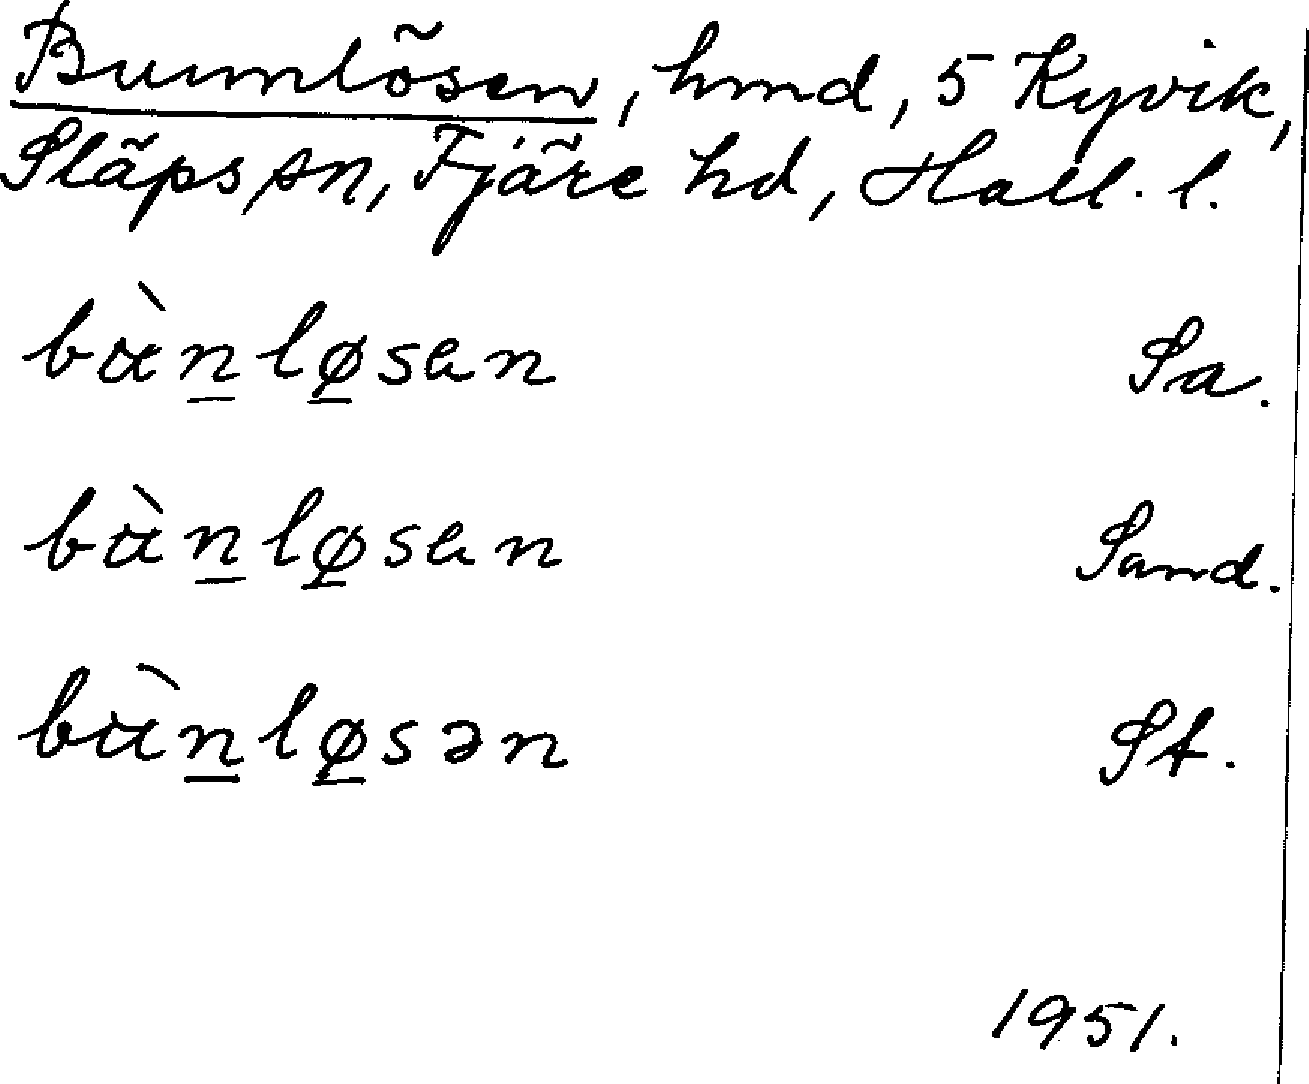 Bumlösen, hmd, 5 Kyvik,
Släps sn, Fjäre hd, Hall. l.
bùn̲lø̲sen Sa.
bùn̲lø̲sen Sand.
bùn̲lø̲sən St.
1951.